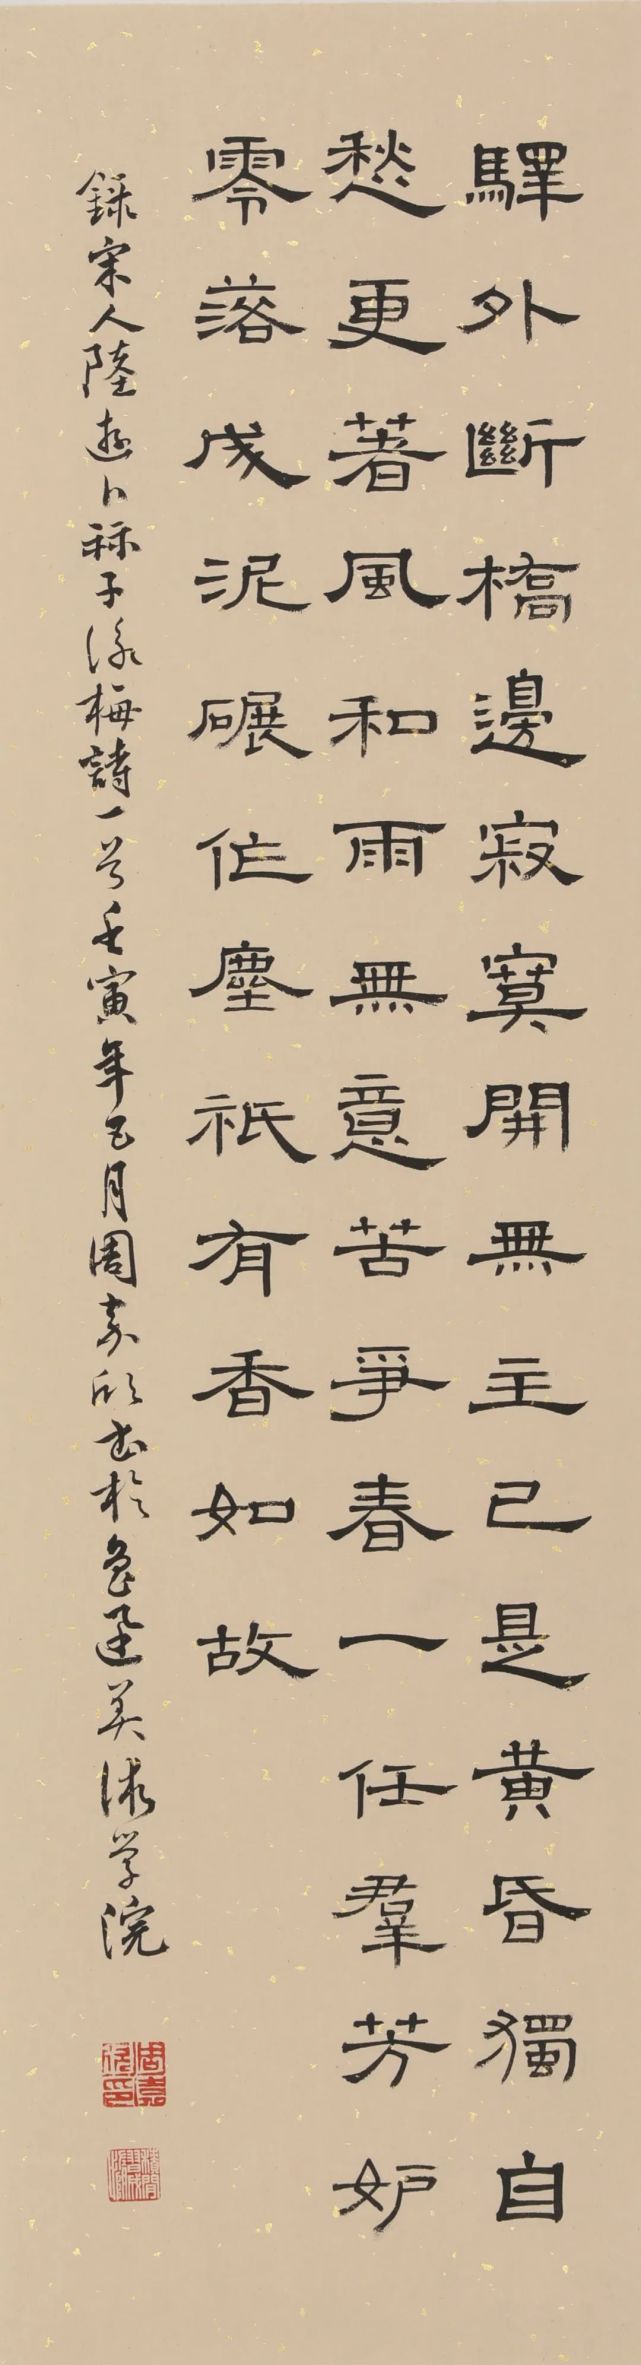 驛外斷橋邊寂寞開無主已是黃昏獨自
愁更著風和雨無意苦爭春一任羣芳妒
零落成泥碾作塵祇有香如故
錄宋人陸游卜祘子詠梅詩一首壬寅年五月周嘉欣書於魯迅美術学院
周嘉欣印